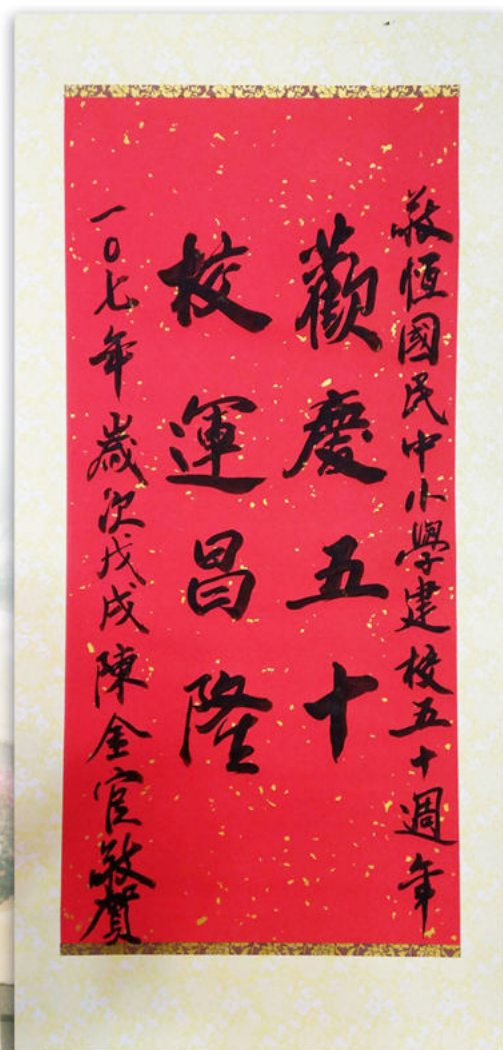 敬恆國民中小學建校五十週年
歡慶五十
校運昌隆
一0七年歲次戊戌陳金官敬賀